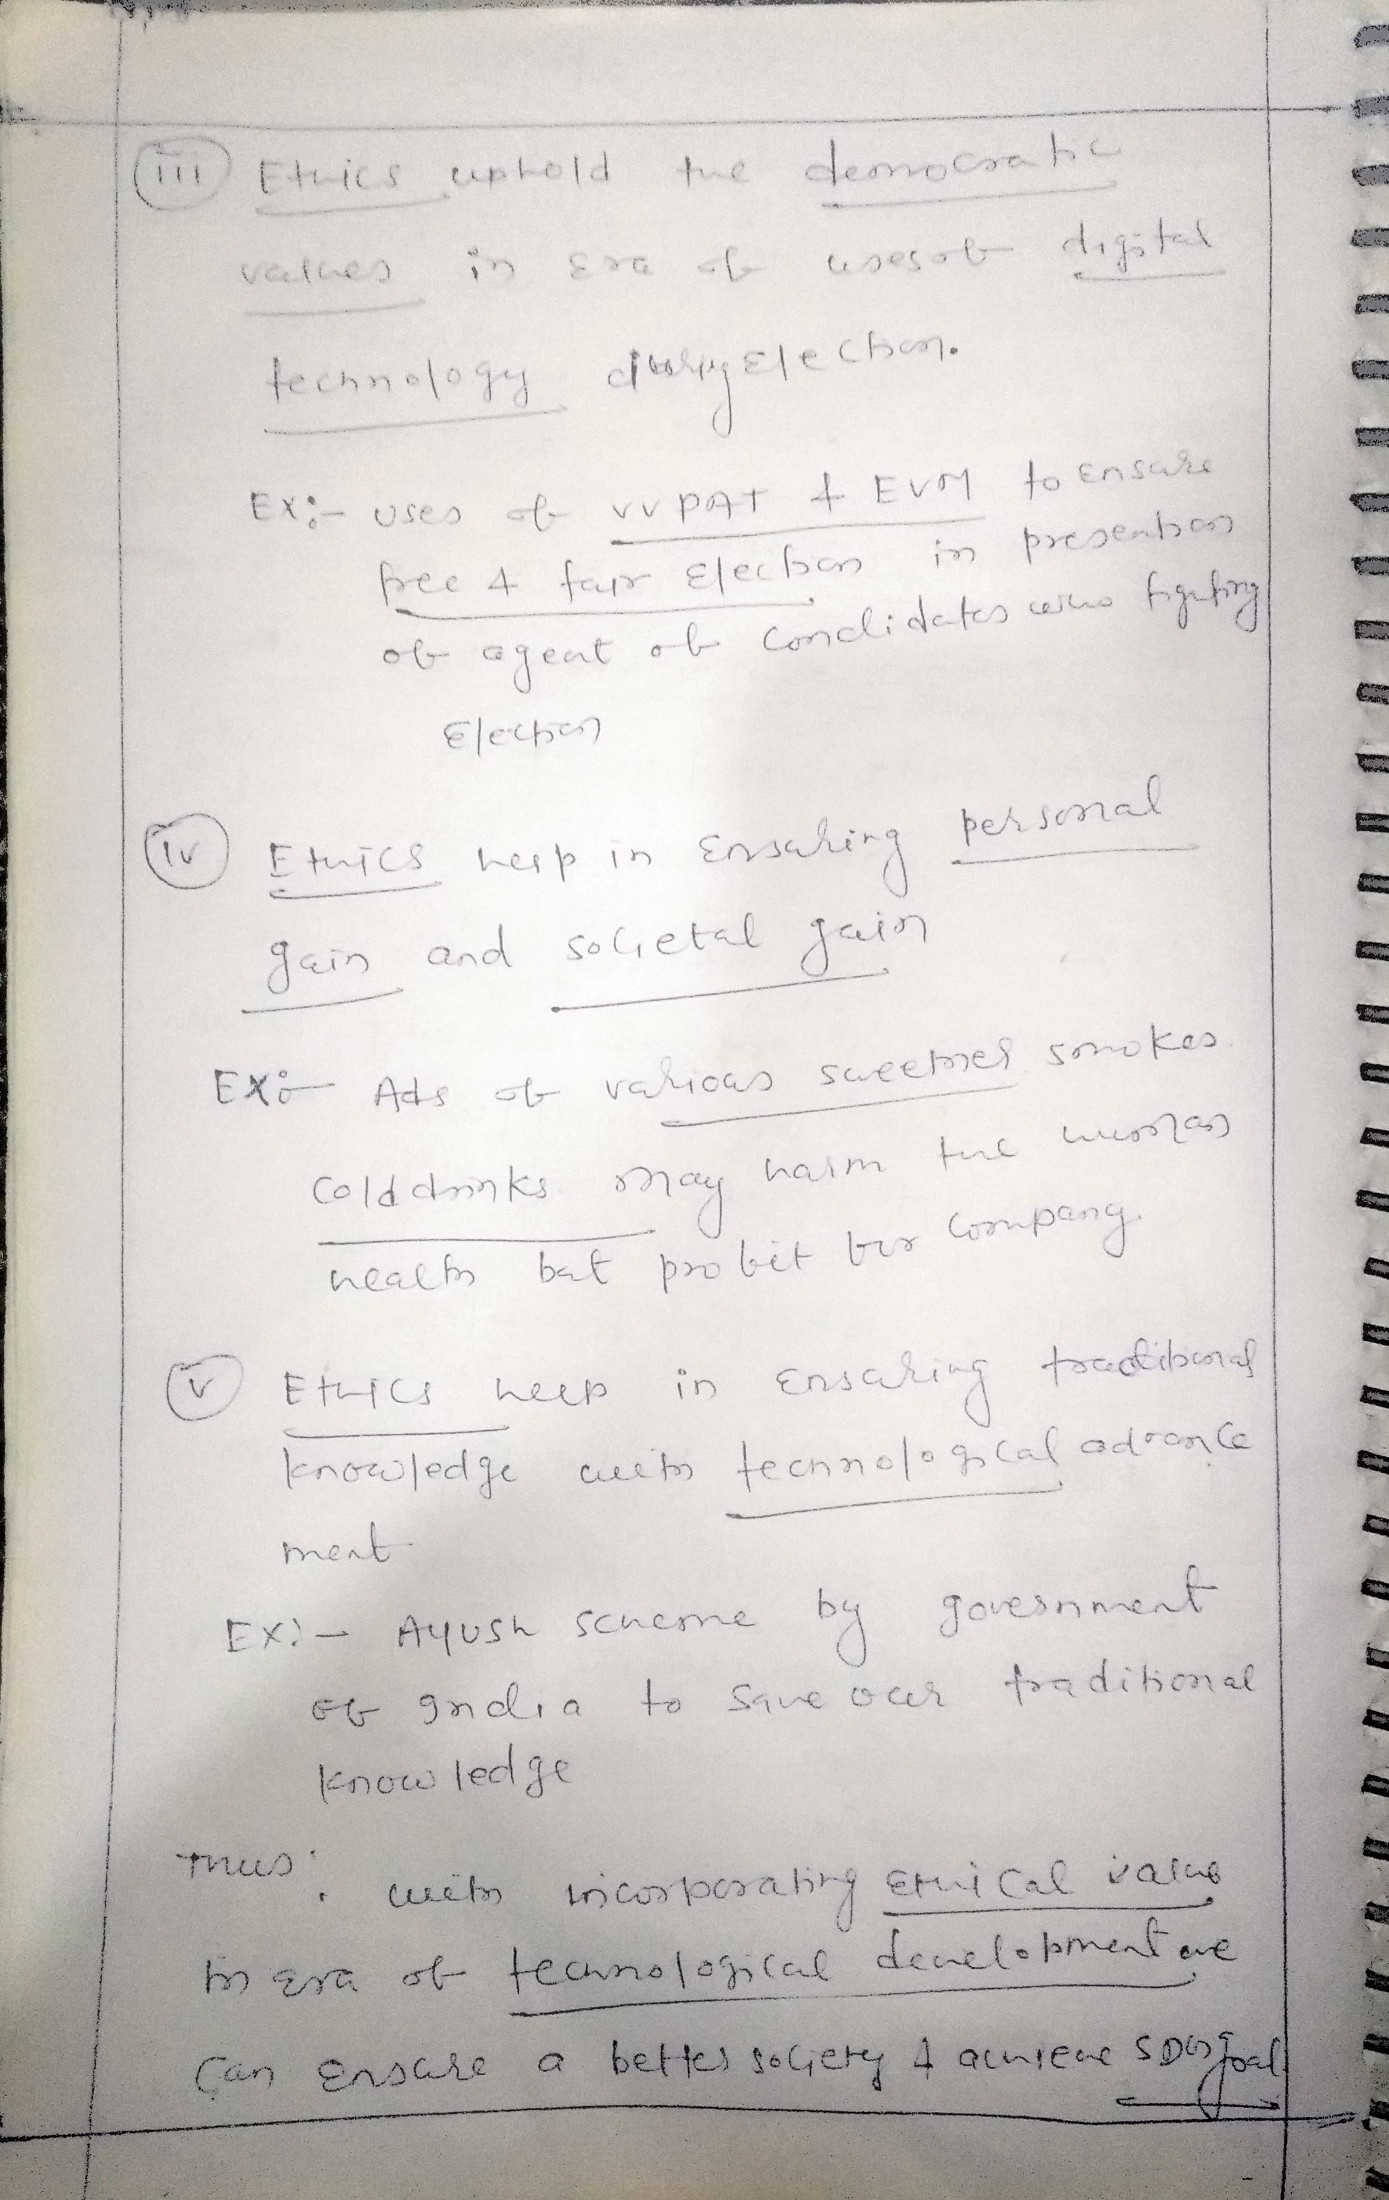 (iii) Ethics uphold the democratic
values in Era of uses of digital
technology during Election.
Ex:- uses of VVPAT & EVM to ensure
free & fair Election in presention
of agent of condidates who fighting
Election
(iv) Ethics help in Ensuring personal
gain and societal gain
Ex:- Ads of various sweetner smokes
cold drinks may harm the human
health but profit for company.
(v) Ethics help in Ensuring traditional
knowledge with technological advance
ment
Ex:- Ayush scheme by government
of India to save our traditional
knowledge
Thus: with incorporating Ethical value
in Era of technological development we
can Ensure a better society & achieve SDG goal